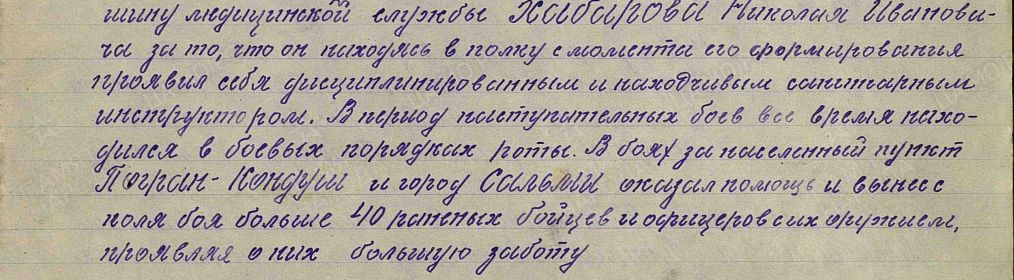 шину медицинской службы Хабарова Николая Иванови-
ча за то, что он находясь в полку с момента его формирования
проявил себя дисциплинированным и находчивым санитарным
инструктором. В период наступательных боев все время нахо-
дился в боевых порядках роты. В боях за населенный пункт
Погран-Кондуши и город Сальми оказал помощь и вынес с
поля боя больше 40 раненых бойцев и офицеров с их оружием,
проявляя о них большую заботу